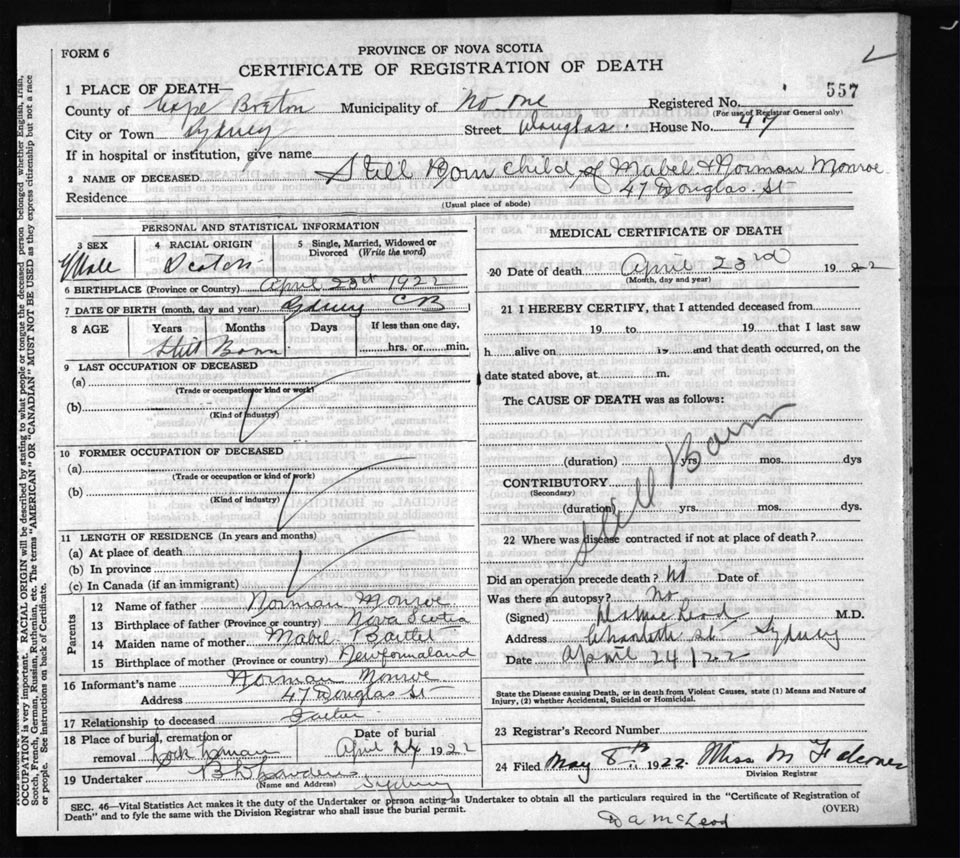 FORM 6
PROVINCE OF NOVA SCOTIA
CERTIFICATE OF REGISTRATION OF DEATH
557
1 PLACE OF DEATH—
County of Cape Breton Municipality of No one Registered No.
(For use of Registrar General only)
City or Town Sydney Street Douglas. House No. 47
If in hospital or institution, give name
2 NAME OF DECEASED Still Born child of Mabel & Norman Monroe
Residence 47 Douglas. St
(Usual place of abode)
PERSONAL AND STATISTICAL INFORMATION
3 SEX 4 RACIAL ORIGIN 5 Single, Married, Widowed or Divorced (Write the word)
Male
6 BIRTHPLACE (Province or Country) April 23rd 1922
7 DATE OF BIRTH (month, day and year) Sydney CB
8 AGE Years Months Days If less than one day,
Still Born hrs. or min.
9 LAST OCCUPATION OF DECEASED
(a)
(Trade or occupation or kind or work)
(b)
(Kind of industry)
10 FORMER OCCUPATION OF DECEASED
(a)
(Trade or occupation or kind of work)
(b)
(Kind of industry)
11 LENGTH OF RESIDENCE (In years and months)
(a) At place of death
(b) In province
(c) In Canada (if an immigrant)
Parents
12 Name of father Norman Monroe
13 Birthplace of father (Province or country) Nova Scotia
14 Maiden name of mother Mabel Bartlet
15 Birthplace of mother (Province or country) Newfounaland
16 Informant's name Norman Monroe
Address 47 Douglas St
17 Relationship to deceased
18 Place of burial, cremation or removal Date of burial
April 24 1922
19 Undertaker
(Name and Address) Sydney
MEDICAL CERTIFICATE OF DEATH
20 Date of death April 23rd 1922
(Month, day and year)
21 I HEREBY CERTIFY, that I attended deceased from
19 to 19 that I last saw
h alive on 19 and that death occurred, on the
date stated above, at m.
The CAUSE OF DEATH was as follows:
Still Born
(duration) yrs. mos. dys
CONTRIBUTORY
(Secondary)
(duration) yrs. mos. dys.
22 Where was disease contracted if not at place of death?
Did an operation precede death? No Date of
Was there an autopsy? No
(Signed) DA MacLeod M.D.
Address Charlotte St. Sydney
Date April 24/22
State the Disease causing Death, or in death from Violent Causes, state (1) Means and Nature of
Injury, (2) whether Accidental, Suicidal or Homicidal.
23 Registrar's Record Number
24 Filed May 8th 1922 Miss M
Division Registrar
SEC. 46—Vital Statistics Act makes it the duty of the Undertaker or person acting as Undertaker to obtain all the particulars required in the "Certificate of Registration of
Death" and to fyle the same with the Division Registrar who shall issue the burial permit.
(OVER)
D A McLeod
OCCUPATION is very important. RACIAL ORIGIN will be described by stating to what people or tongue the deceased person belonged whether English, Irish,
Scotch, French, German, Russian, Ruthenian, etc. The terms "AMERICAN" OR "CANADIAN" MUST NOT BE USED as they express citizenship but not a race
or people. See instructions on back of Certificate.